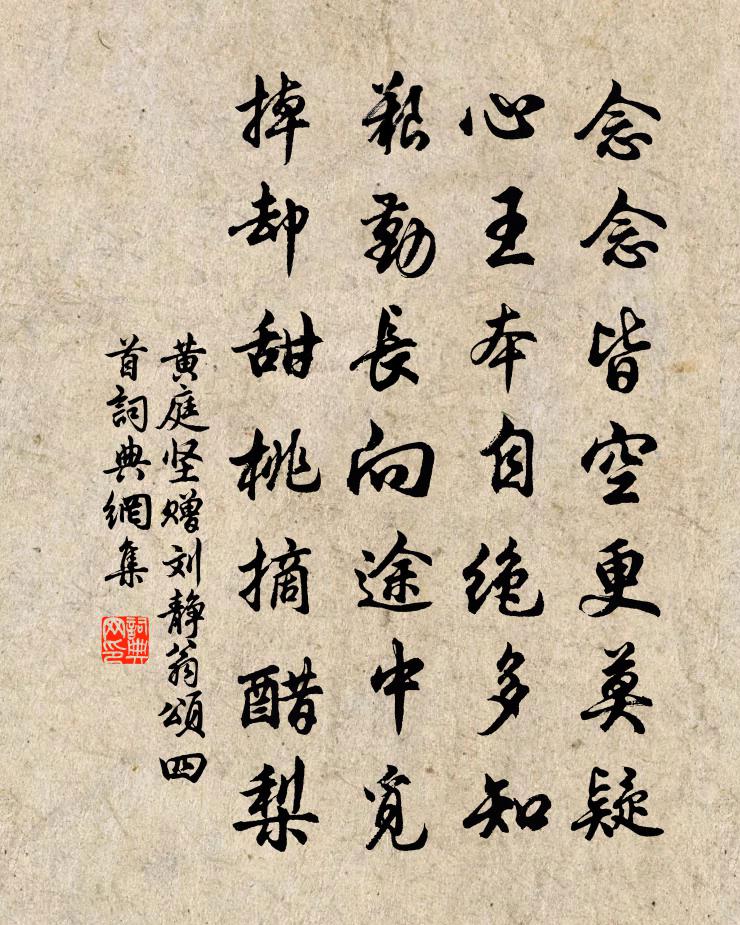 念念皆空更莫疑
心王本自绝多知
艱勤長向途中覓
掉却甜桃摘醋梨
黄庭坚赠刘静翁頌四
首詞典網集
詞典
网印